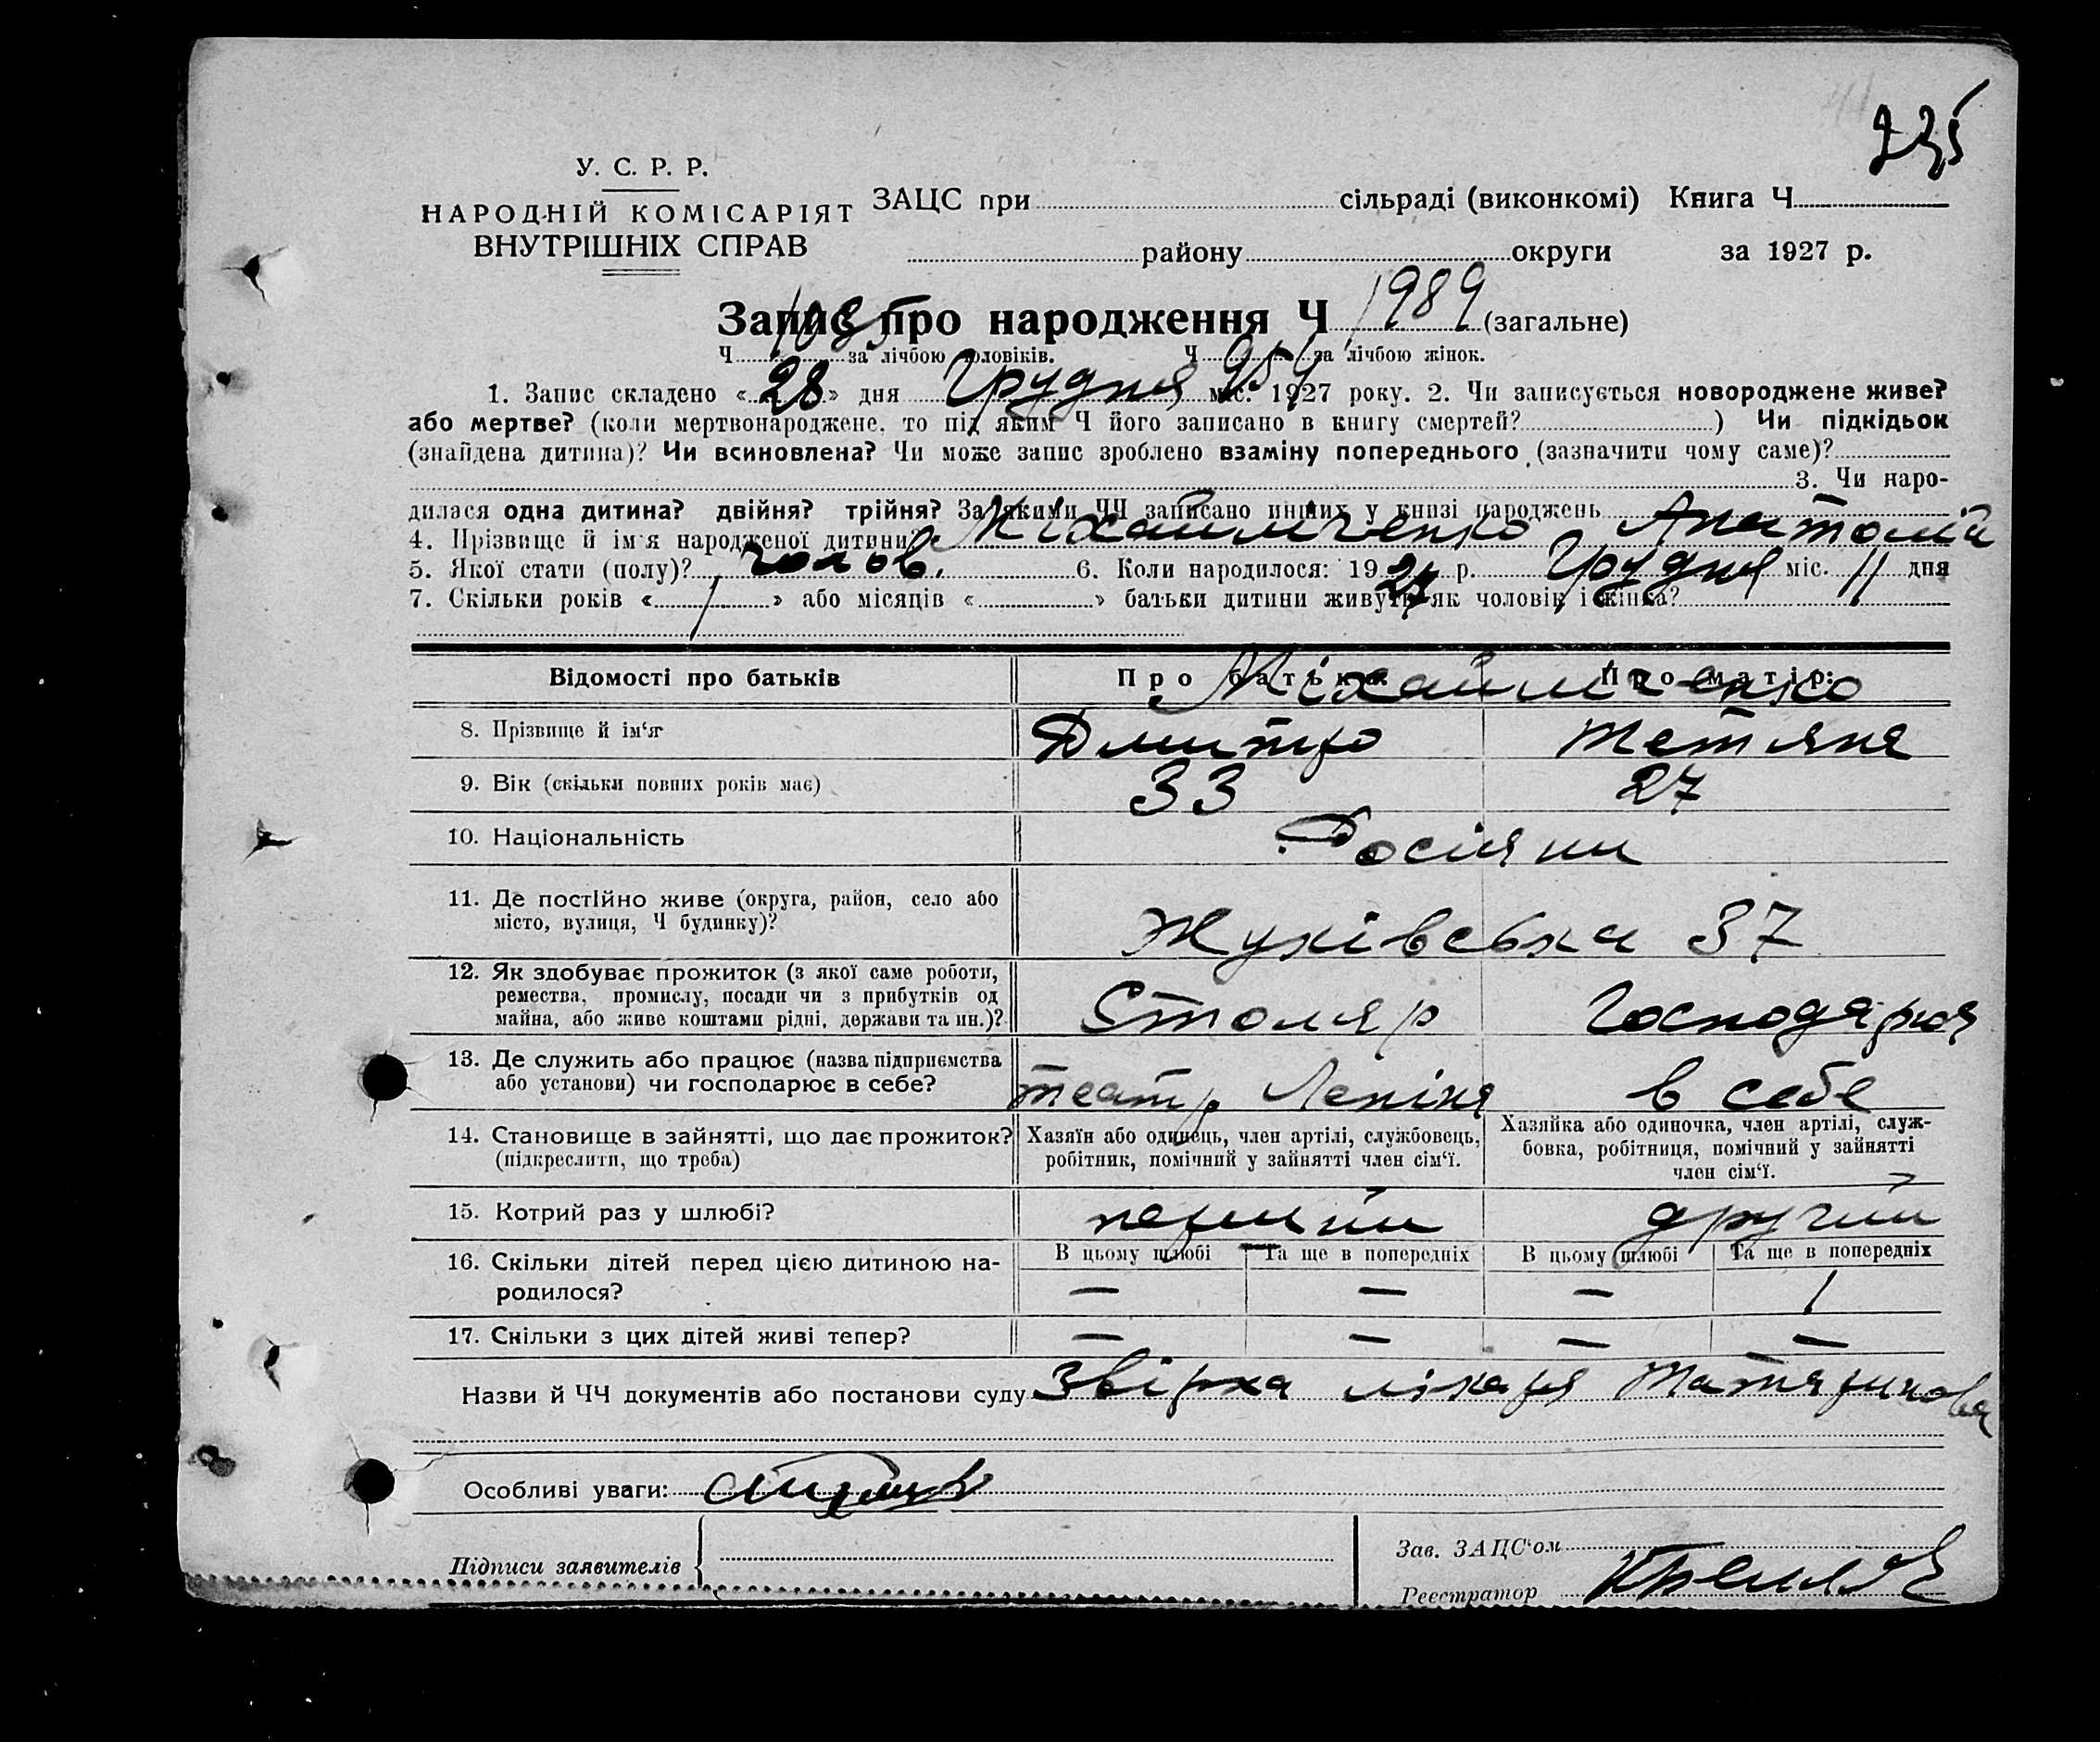 235
У. С. Р. Р.
НАРОДНІЙ КОМІСАРІЯТ
ВНУТРІШНІХ СПРАВ
ЗАЦС при сільраді (виконкомі) Книга Ч
району округи за 1927 р.
Запис про народження Ч 1989 (загальне)
Ч 1035 за лічбою чоловіків. Ч 954 за лічбою жінок.
1. Запис складено « 28 » дня Грудня міс. 1927 року. 2. Чи записується новороджене живе?
або мертве? (коли мертвонароджене, то під яким Ч його записано в книгу смертей? ) Чи підкідьок
(знайдена дитина)? Чи всиновлена? Чи може запис зроблено взаміну попереднього (зазначити чому саме)?
3. Чи наро-
дилася одна дитина? двійня? трійня? За якими ЧЧ записано инших у книзі народжень
4. Прізвище й ім'я народженої дитини? Міхайличенко Анатолій
5. Якої стати (полу)? чолов. 6. Коли народилося: 1927 р. Грудня міс. 11 дня
7. Скільки років « 1 » або місяців « » батьки дитини живуть як чоловік і жінка?
Відомості про батьків Про батька: Про матір:
Міхайличенко
8. Прізвище й ім'я Дмитро Тетяна
9. Вік (скільки повних років має) 33 27
10. Національність Росіяни
11. Де постійно живе (округа, район, село або
місто, вулиця, Ч будинку)? Жуківська 37
12. Як здобуває прожиток (з якої саме роботи,
ремества, промислу, посади чи з прибутків од
майна, або живе коштами рідні, держави та ин.)? Столяр Господарює
13. Де служить або працює (назва підприємства
або установи) чи господарює в себе? театр Леніна в себе
14. Становище в зайнятті, що дає прожиток?
(підкреслити, що треба)
Хазяїн або одинець, член артілі, службовець,
робітник, помічний у зайнятті член сім'ї.
Хазяйка або одиночка, член артілі, служ-
бовка, робітниця, помічний у зайнятті
член сім'ї.
15. Котрий раз у шлюбі? перший другий
16. Скільки дітей перед цією дитиною на-
родилося?
В цьому шлюбі Та ще в попередніх В цьому шлюбі Та ще в попередніх
— — — 1
17. Скільки з цих дітей живі тепер? — — — —
Назви й ЧЧ документів або постанови суду Звірка лікаря Татаринова
Особливі уваги:
Підписи заявителів
Зав. ЗАЦС'ом
Реєстратор